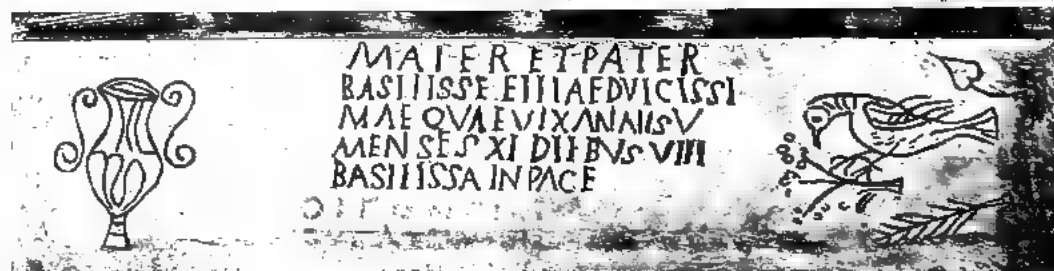 MATER ET PATER
BASILISSE FILIAE DVLCISSI
MAE QVAE VIX ANNIS V
MENSES XI DIEBVS VIII
BASILISSA IN PACE